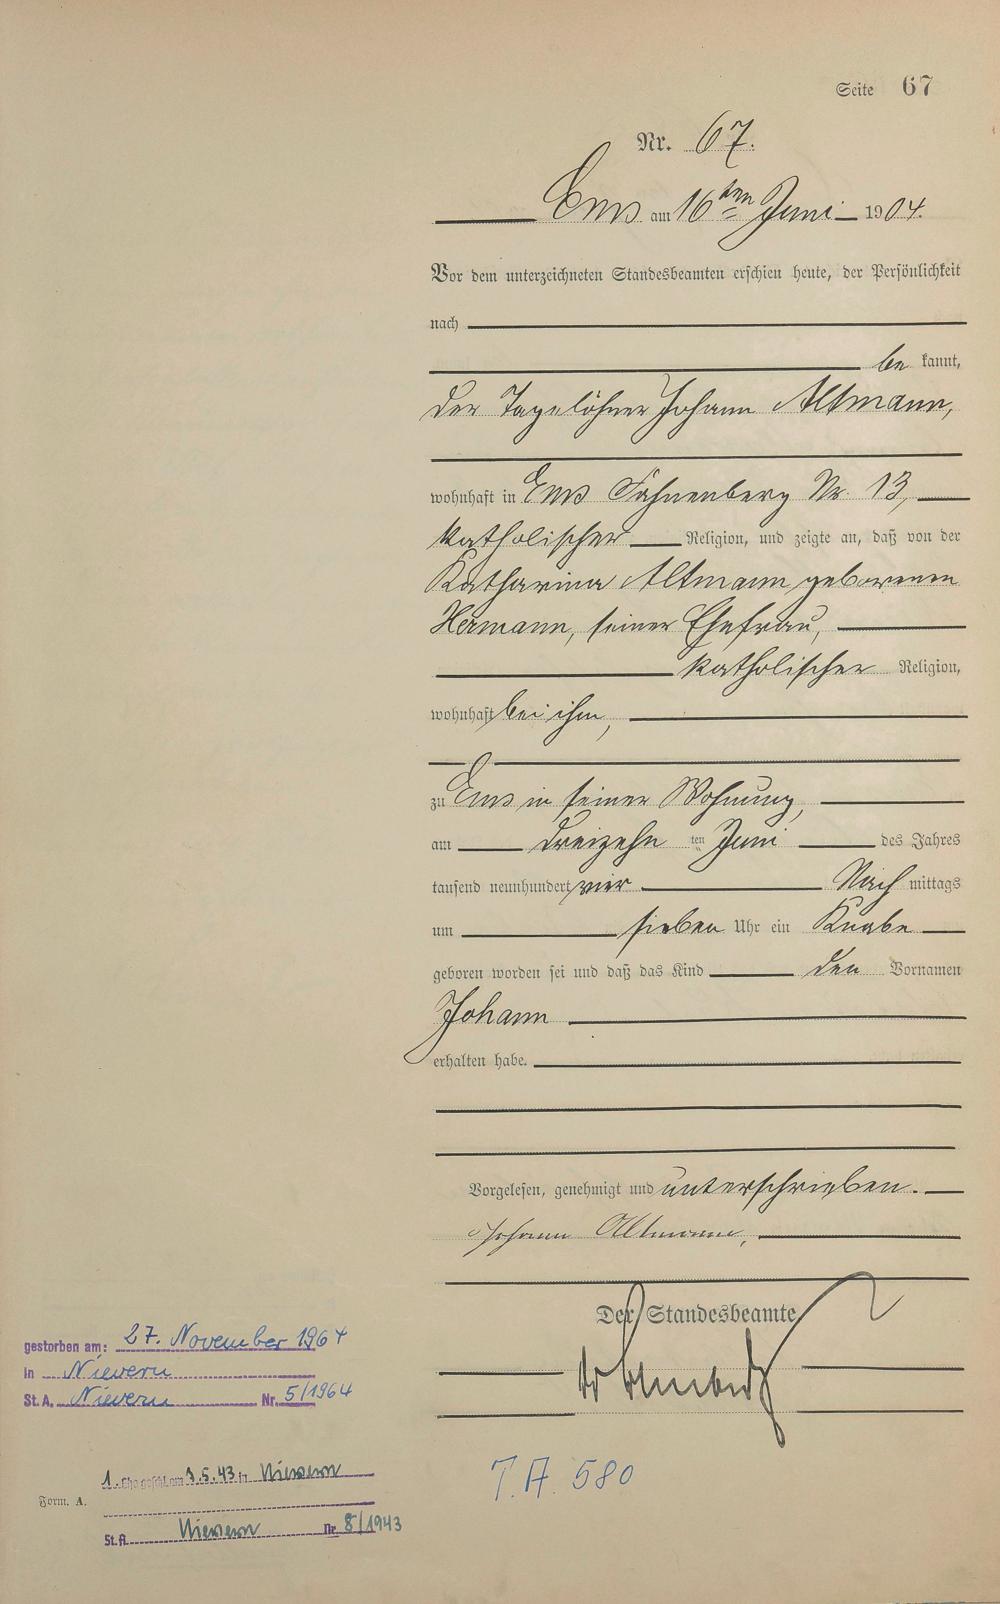 Seite 67
Nr. 67.
Ems am 16ten Juni 1904.
Vor dem unterzeichneten Standesbeamten erschien heute, der Persönlichkeit
nach
be kannt,
der Tagelöhner Johann Altmann,
wohnhaft in Ems Fahnenberg Nr. 13,
katholischer Religion, und zeigte an, daß von der
Katharina Altmann geborenen
Hermann, seiner Ehefrau,
katholischer Religion,
wohnhaft bei ihm,
zu Ems in seiner Wohnung,
am dreizehn ten Juni des Jahres
tausend neunhundert vier Nach mittags
um sieben Uhr ein Knabe
geboren worden sei und daß das Kind den Vornamen
Johann
erhalten habe.
Vorgelesen, genehmigt und unterschrieben.
Johann Altmann,
Der Standesbeamte
gestorben am: 27. November 1964
in Nievern
St. A. Nievern Nr. 5/1964
1. Ehe geschl. am 3.5.43 in Nievern
Form. A.
St. A. Nievern Nr. 8/1943
T.A. 580